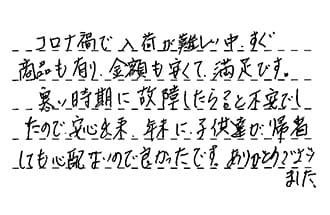 コロナ禍で入荷が難しい中、すぐ
商品も有り、金額も安くて、満足です。
寒い時期に故障したらと不安でし
たので安心出来、年末に子供達が帰省
しても心配ないので良かったです。ありがとうござい
ました